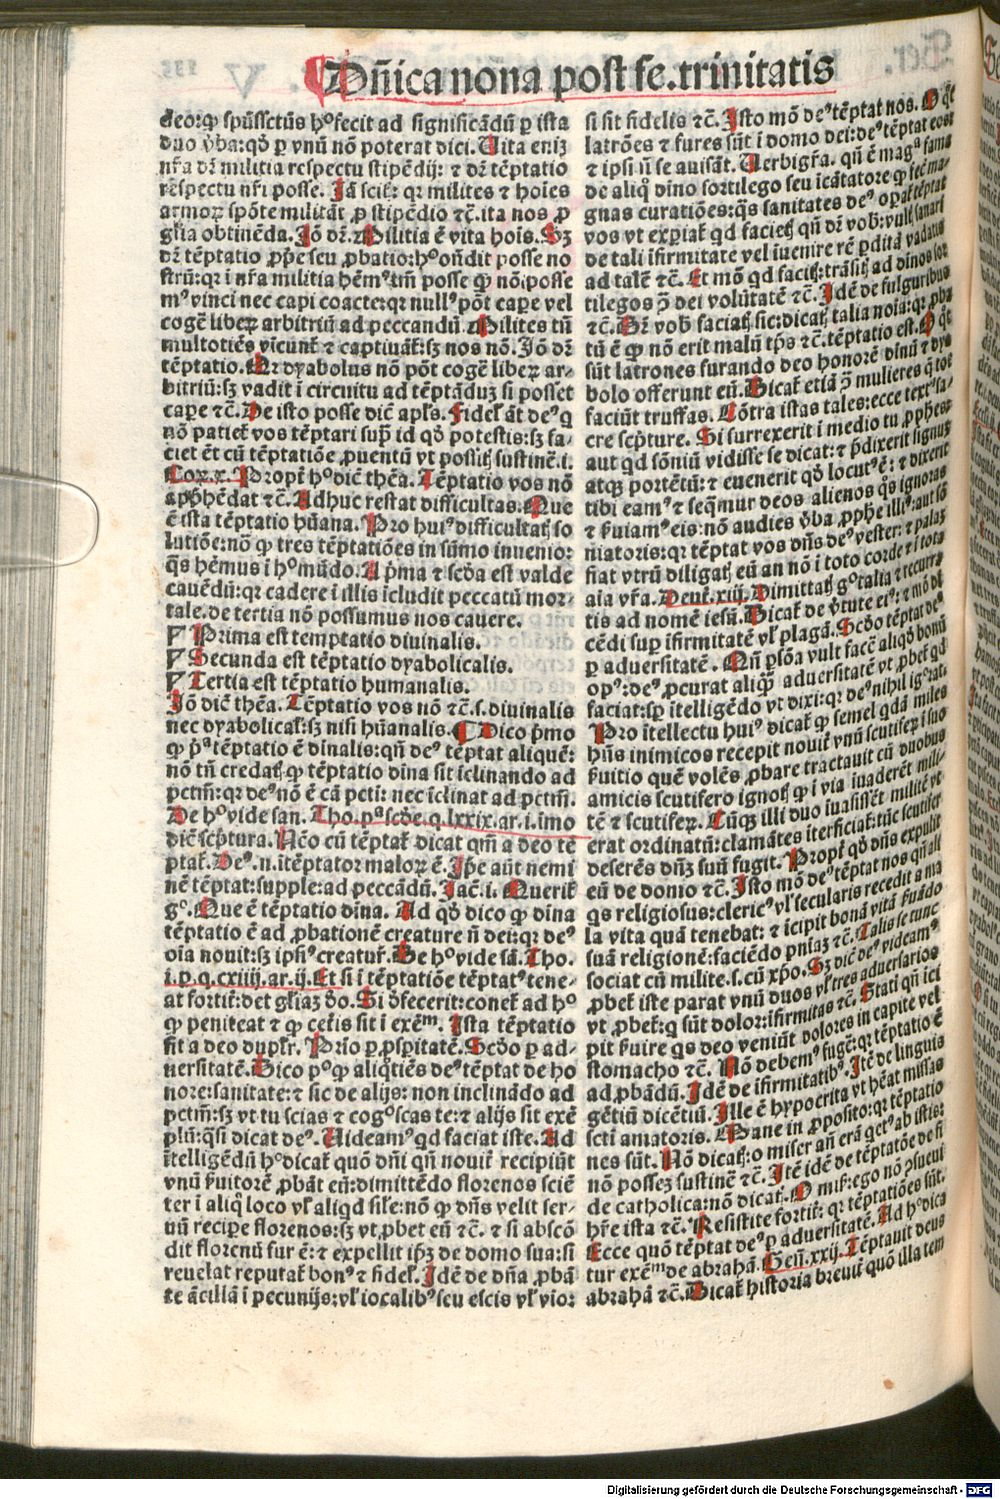 Dñica nona post fe. trinitatis
deo: ꝙ spũssctũs hᵒ fecit ad significãdũ ꝑ ista
duo ỽba: qđ ꝑ vnũ nõ poterat dici. Uita enĩ
nr̃a dr̃ militia respectu stipẽdij: ⁊ dr̃ tẽptatio
respectu nr̃i posse. Jã scił: qꝛ milites ⁊ hoĩes
armoꝝ spõte militãt ꝓ stipẽdio ⁊c̃. ita nos ꝓ
gl̃ia obtinẽda. Jõ dr̃. Militia ẽ vita hoĩs. Sꝫ
dr̃ tẽptatio ꝓp̃e seu ꝓbatio: hᵒ oñdit posse no
strũ: qꝛ ĩ nr̃a militia hẽmꝰ tm̃ posse ꝙ nõ posse
mꝰ vinci nec capi coacte: qꝛ nullꝰ põt cape vel
cogẽ libeꝝ arbitriũ ad peccandũ. Milites tñ
multotiẽs vĩcunt̃ ⁊ captiuãt̃: sꝫ nos nõ. Jõ dr̃
tẽptatio. Nã dyabolus nõ põt cogẽ libeꝝ ar-
bitriũ: sꝫ vadit ĩ circuitu ad tẽptãduꝫ si posset
cape ⁊c̃. De isto posse dic̃ apl̃s. Fidel̃ ãt deꝰ q
nõ patiet̃ vos tẽptari sup̃ id qđ potestis: sꝫ fa-
ciet ẽt cũ tẽptatiõe ꝓuentũ vt possitꝭ sustinẽ. i.
Coꝝ. x. Propt̃ hᵒ dic̃ thẽa. Tẽptatio vos nõ
app̃hẽdat ⁊c̃. Adhuc restat difficultas. Que
ẽ ista tẽptatio hũana. Pro huiꝰ difficultatꝭ so
lutiõe: nõ ꝙ tres tẽptatiões in sũmo inuenio:
q̃s hẽmus ĩ hᵒ mũdo. A p̃ma ⁊ scđa est valde
cauẽdũ: qꝛ cadere ĩ illis ĩcludit peccatũ mor-
tale. de tertia nõ possumus nos cauere.
Prima est temptatio diuinalis.
Secunda est tẽptatio dyabolicalis.
Tertia est tẽptatio humanalis.
Jõ dic̃ thẽa. Tẽptatio vos nõ ⁊c̃. s. diuinalis
nec dyabolical̃: sꝫ nisi hũanalis. Dico p̃mo
ꝙ p̃ᵃ tẽptatio ẽ dĩnalis: qñ deꝰ tẽptat aliquẽ:
nõ tñ credatꝭ ꝙ tẽptatio dĩna sit ĩclinando ad
pctm̃: qꝛ deꝰ nõ ẽ cã pcti: nec ĩclinat ad pctm̃.
De hᵒ vide san. Tho. pᵃ scđe. q. lxxix. ar. i. imo
dic̃ sc̃ptura. Nẽo cũ tẽptat̃ dicat qm̃ a deo tẽ
ptat̃. Deꝰ. n. ĩtẽptator maloꝝ ẽ. Jp̃e aũt nemi
nẽ tẽptat: supple: ad peccãdũ. Jac̃. i. Querit̃
gᵒ. Que ẽ tẽptatio dĩna. Ad qđ dico ꝙ dĩna
tẽptatio ẽ ad ꝓbationẽ creature ñ dei: qꝛ deꝰ
oĩa nouit: sꝫ ip̃iꝰ creatur̃. De hᵒ vide sã. Tho.
i. p. q. cxiiij. ar. ij. Et si ĩ tẽptatiõe tẽptatꝰ tene-
at fortit̃: det gl̃iaꝫ đo. Si đfecerit: conet̃ ad hᵒ
ꝙ peniteat ⁊ ꝙ cet̃is sit ĩ exẽᵐ. Ista tẽptatio
fit a deo duplr̃. Prĩo ꝑ ꝓsꝑitatẽ. Scđo ꝑ ad-
uersitatẽ. Dico pᵒ ꝙ aliqñtiẽs deꝰ tẽptat de ho
nore: sanitate: ⁊ sic de alijs: non inclinãdo ad
pctm̃: sꝫ vt tu scias ⁊ cogᵒscas te: ⁊ alijs sit exẽ
plũ: q̃si dicat deꝰ. Uideamꝰ qd faciat iste. Ad
ĩtelligẽdũ hᵒ dicat̃ quõ dñi qñ nouit̃ recipiũt
vnũ ẜuitorẽ ꝓbãt eũ: dimittẽdo florenos sciẽ
ter ĩ aliq̃ loco vł aliqd sił̃e: nõ ꝙ dñs velit ser-
uũ recipe florenos: sꝫ vt ꝓbet eũ ⁊c̃. ⁊ si abscõ
dit florenũ fur ẽ: ⁊ expellit ip̃ꝫ de domo sua: si
reuelat reputat̃ bonꝰ ⁊ fidel̃. Jdẽ de dña ꝓbã
te ãcillã ĩ pecunijs: vł iocalibꝰ seu escis vł vio:
si sit fidelis ⁊c̃. Isto mõ deꝰ tẽptat nos.
latrões ⁊ fures sũt ĩ domo dei: deꝰ tẽptat eos
⁊ ipsi ñ se auisãt. Uerbigr̃a. qñ ẽ magᵃ fama
de aliq̃ dĩno sortilego seu ĩcãtatore ꝙ
gnas curatiões: q̃s sanitates deꝰ
vos vt expiat̃ qd facietꝭ qñ dr̃ vob̃: vultꝭ sanari
de tali ĩfirmitate vel ĩuenire rẽ ꝑditã vadatis
ad talẽ ⁊c̃. Et mõ qd facitꝭ: trãsitꝭ ad dĩnos
tilegos p̃ dei volũtatẽ ⁊c̃. Jdẽ de fulguribus
⁊c̃. Dr̃ vob̃ faciatꝭ sic: dicatꝭ talia noĩa:
tũ ẽ ꝙ nõ erit malũ tp̃s ⁊c̃. tẽptatio est.
sũt latrones furando deo honorẽ dĩnũ ⁊ dya
bolo offerunt eũ. Dicat̃ etiã p̃ mulieres q̃
faciũt truffas. Cõtra istas tales: ecce textꝰ sa-
cre scp̃ture. Si surrexerit ĩ medio tu ꝓphes
aut qd sõniũ vidisse se dicat: ⁊ p̃dixerit signuꝫ
atqꝫ portẽtũ: ⁊ euenerit qđ locutꝰ ẽ: ⁊ dixerit
tibi eamꝰ ⁊ seq̃mur deos alienos q̃s ignoras
⁊ ẜuiamꝰ eis: nõ audies ỽba ꝓph̃e illiꝰ: aut sõ
niatoris: qꝛ tẽptat vos dñs deꝰ vester: ⁊ palaꝫ
fiat vtrũ diligatꝭ eũ an nõ ĩ toto corde ⁊ ĩ tota
aĩa vr̃a. Deut̃. xiij. Dimittatꝭ gᵒ talia ⁊
tis ad nomẽ iesũ. Dicat̃ de ỽtute eiꝰ: ⁊
cẽdi sup ĩfirmitatẽ vł plagã. Scđo tẽptat deꝰ
ꝑ aduersitatẽ. Qñ ꝑsõa vult facẽ aliqđ bonũ
opꝰ: deꝰ ꝓcurat aliq̃ aduersitatẽ vt ꝓbet qd
faciat: sꝑ ĩtelligẽdo vt dixi: qꝛ deꝰ nihil igᵒrat.
Pro ĩtellectu huiꝰ dicat̃ ꝙ semel qdã miles
hñs inimicos recepit nouit̃ vnũ scutiferũ ĩ suo
ẜuitio quẽ volẽs ꝓbare tractauit cũ duobus
amicis scutifero ignotꝭ ꝙ ĩ via ĩuaderẽt mili-
tẽ ⁊ scutiferꝝ. Cũqꝫ illi duo ĩuasissẽt militẽ vt
erat ordinatũ: clamãtes ĩterficiat̃: tũc scutifer
deserẽs dñꝫ suũ fugit. Propt̃ qđ dñs expulit
eũ de domo ⁊c̃. Isto mõ deꝰ tẽptat nos qñ ali
qs religiosus: clericꝰ vł secularis recedit a ma
la vita quã tenebat: ⁊ ĩcipit bonã vitã ẜuãdo
suã religionẽ: faciẽdo pniaꝫ ⁊c̃. Talis se tunc
sociat cũ milite. s. cũ xp̃o. Sꝫ dic̃ deꝰ videamꝰ
ꝓbet̃ iste parat vnũ duos vł tres aduersarios
vt ꝓbet̃: q sũt dolor: ĩfirmitas ⁊c̃. Stati qñ ĩci
pit ẜuire qs deo veniũt dolores in capite vel
stomacho ⁊c̃. Nõ debemꝰ fugẽ: qꝛ tẽptatio ẽ
ad ꝓbãdũ. Jdẽ de ĩfirmitatibꝰ. Jtẽ de linguis
gẽtiũ dicẽtiũ. Ille ẽ hypocrita vt hẽat missas
scti amatoris. Mane in ꝓposito: qꝛ tẽptatio
nes sũt. Nõ dicatꝭ: o miser añ erã getꝰ ab istis:
nõ posseꝫ sustinẽ ⁊c̃. Jtẽ idẽ de tẽptatõe de fi
de catholica: nõ dicatꝭ. O mis̃: ego nõ p̃sueui
hr̃e ista ⁊c̃. Resistite fortit̃: qꝛ tẽptatiões sũt.
Ecce quõ tẽptat deꝰ ꝑ aduersitatẽ. Ad hᵒ dica
tur exẽᵐ de abrahã. Geñ. xxij. Tẽptauit deus
abrahã ⁊c̃. Dicat̃ historia breuit̃ quõ illa tem
Digitalisierung gefördert durch die Deutsche Forschungsgemeinschaft - DFG